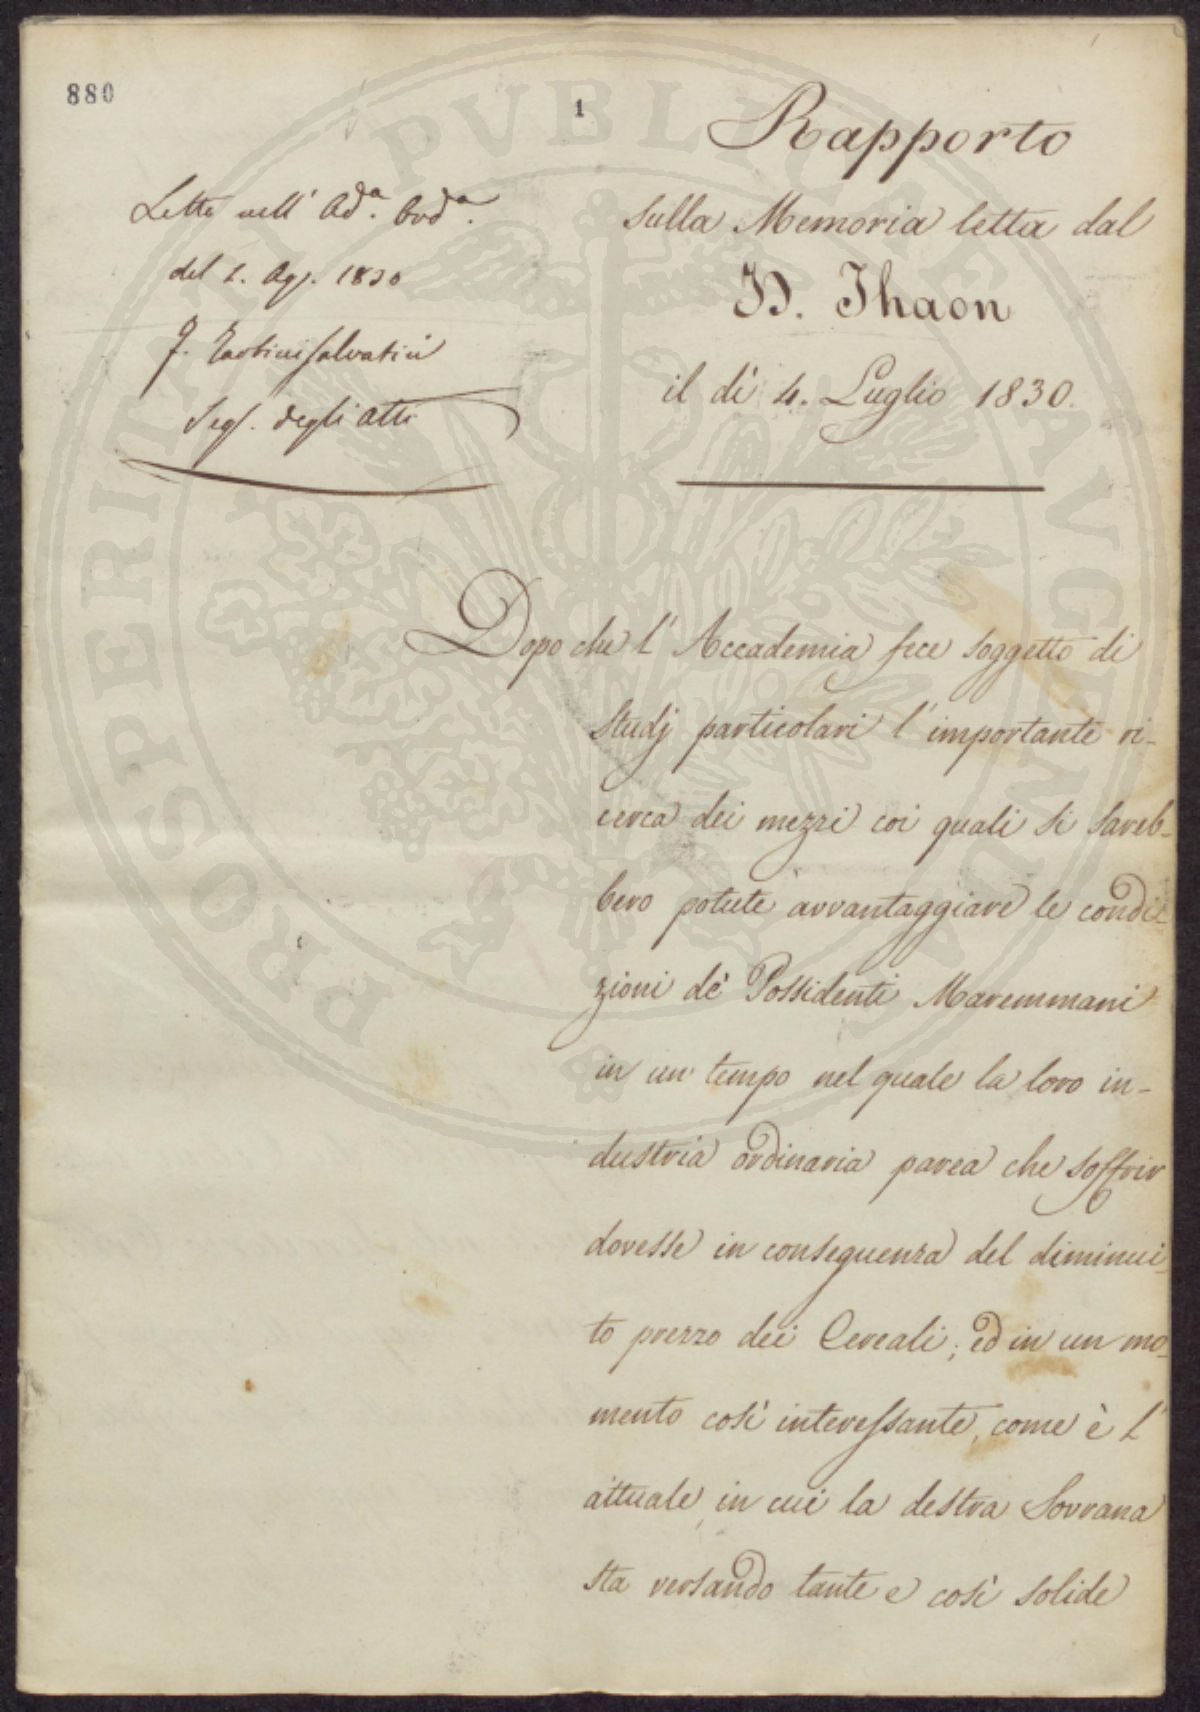 880
1
Rapporto
sulla Memoria letta dal
D. Thaon
il dì 4. Luglio 1830.
Letto nell' Ad.a Ord.a
del 1. Ag. 1830
F. Tartini Salvatici
Seg. degli atti
Dopo che l' Accademia fece soggetto di
studj particolari l' importante ri-
cerca dei mezzi coi quali si sareb-
bero potute avvantaggiare le condi-
zioni de' Possidenti Maremmani
in un tempo nel quale la loro in-
dustria ordinaria parea che soffrir
dovesse in conseguenza del diminui-
to prezzo dei Cereali; ed in un mo-
mento così interessante, come è l'
attuale, in cui la destra Sovrana
sta versando tante e così solide
PROSPERITATI PVBLICAE AVGENDAE